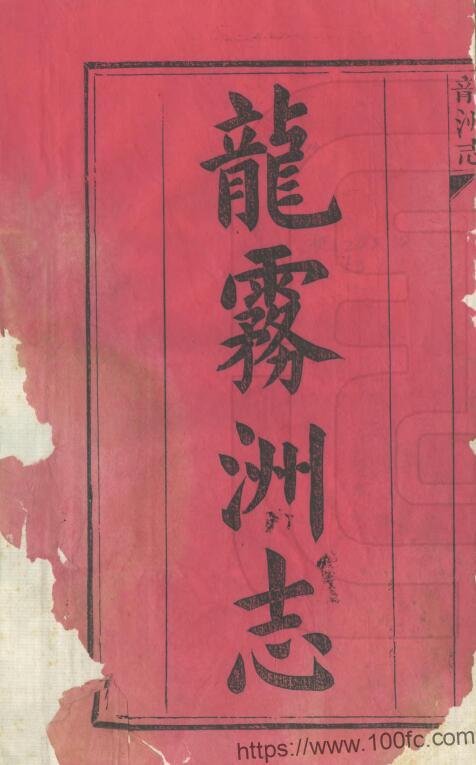 龍霧洲志
洲志
https://www.100fc.com